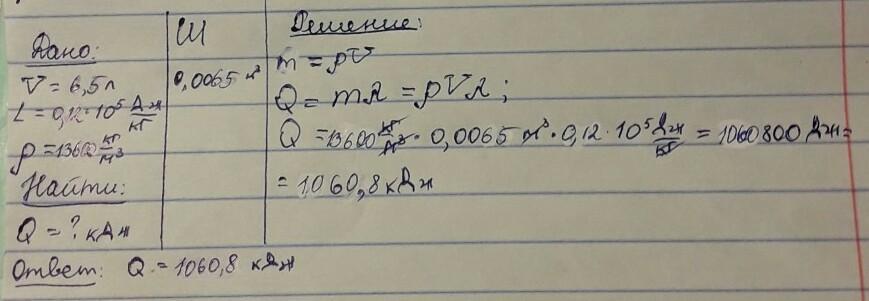 Дано:
V = 6,5 л
L = 0,12 · 10⁵ Дж/кг
ρ = 13600 кг/м³
Найти:
Q = ? кДж
СИ
0,0065 м³
Решение:
m = ρV
Q = mλ = ρVλ;
Q = 13600 кг/м³ · 0,0065 м³ · 0,12 · 10⁵ Дж/кг = 1060800 Дж =
= 1060,8 кДж
Ответ: Q = 1060,8 кДж